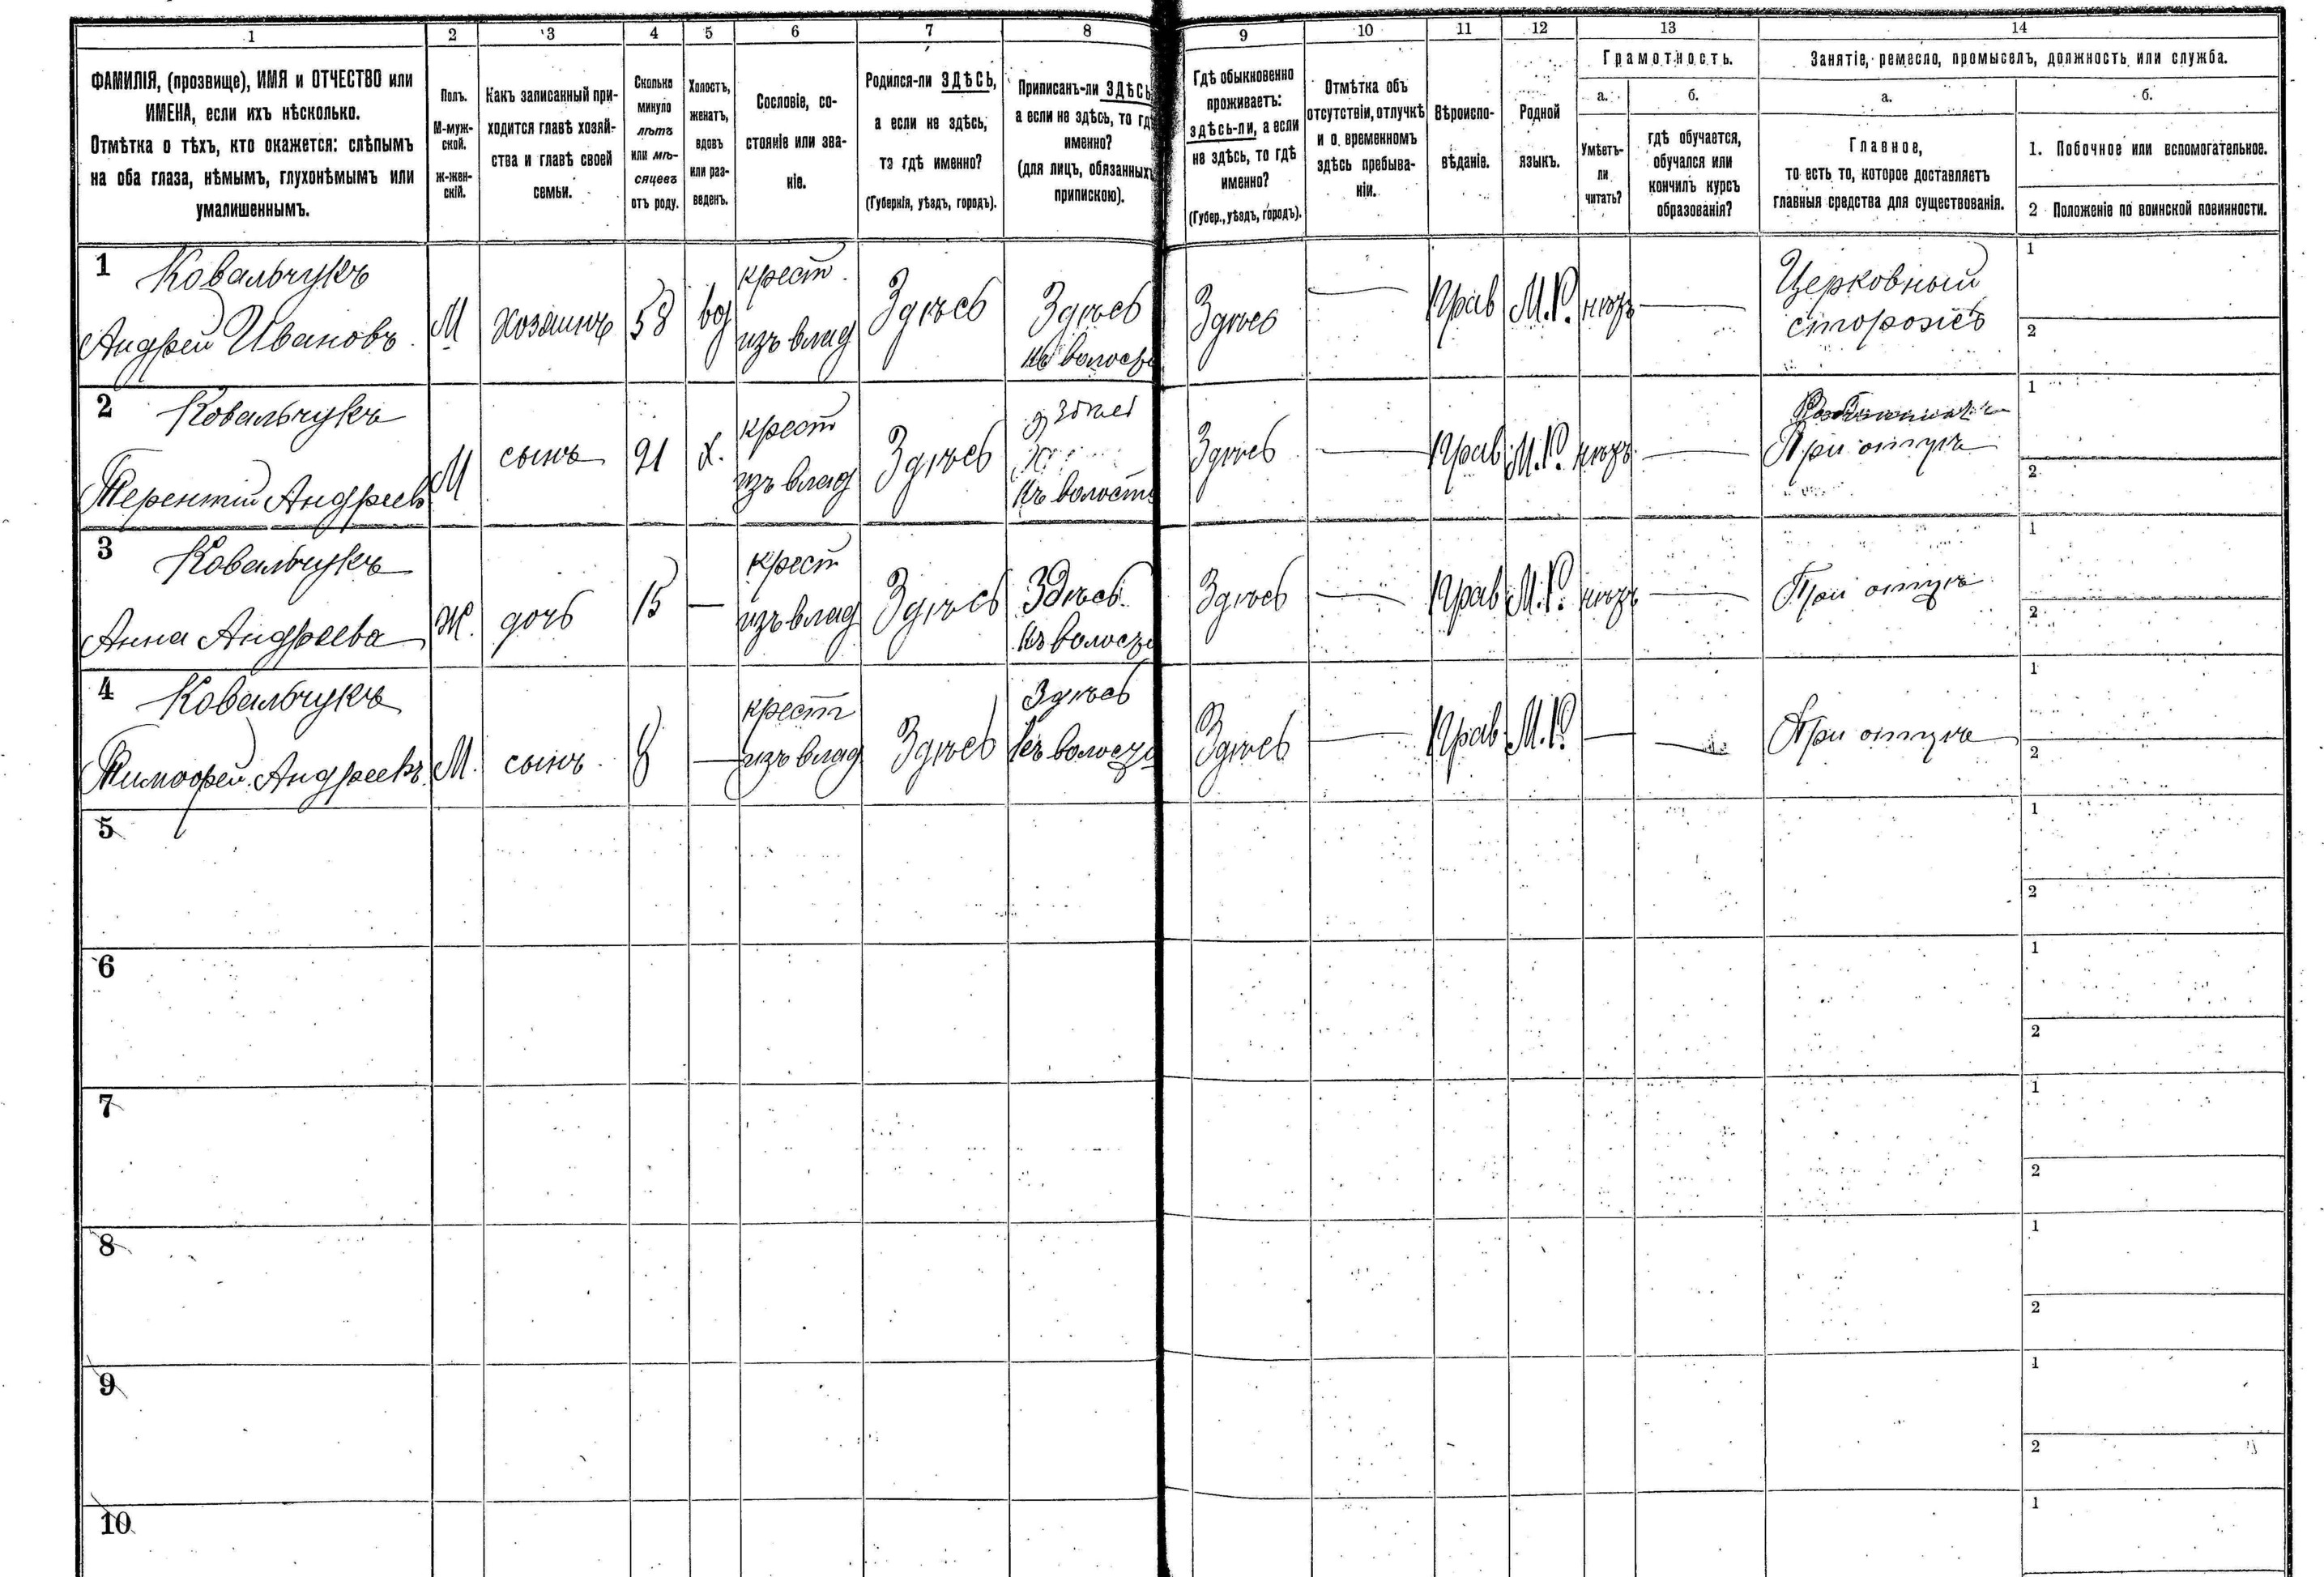 1 2 3 4 5 6 7 8 9 10 11 12 13 14
ФАМИЛІЯ, (прозвище), ИМЯ и ОТЧЕСТВО или
ИМЕНА, если ихъ нѣсколько.
Отмѣтка о тѣхъ, кто окажется: слѣпымъ
на оба глаза, нѣмымъ, глухонѣмымъ или
умалишеннымъ.
Полъ.
М-муж-
ской.
Ж-жен-
скій.
Какъ записанный при-
ходится главѣ хозяй-
ства и главѣ своей
семьи.
Сколько
минуло
лѣтъ
или мѣ-
сяцевъ
отъ роду.
Холостъ,
женатъ,
вдовъ
или раз-
веденъ.
Сословіе, со-
стояніе или зва-
ніе.
Родился-ли ЗДѢСЬ,
а если не здѣсь,
то гдѣ именно?
(Губернія, уѣздъ, городъ).
Приписанъ-ли ЗДѢСЬ
а если не здѣсь, то гдѣ
именно?
(для лицъ, обязанныхъ
припискою).
Гдѣ обыкновенно
проживаетъ:
здѣсь-ли, а если
не здѣсь, то гдѣ
именно?
(Губер., уѣздъ, городъ).
Отмѣтка объ
отсутствіи, отлучкѣ
и о временномъ
здѣсь пребыва-
ніи.
Вѣроиспо-
вѣданіе.
Родной
языкъ.
Грамотность.
а.
Умѣетъ-
ли
читать?
б.
гдѣ обучается,
обучался или
кончилъ курсъ
образованія?
Занятіе, ремесло, промыселъ, должность или служба.
а.
Главное,
то есть то, которое доставляетъ
главныя средства для существованія.
б.
1. Побочное или вспомогательное.
2 Положеніе по воинской повинности.
1 Ковальчукъ
Андрей Ивановъ
М
хозяинъ
58
вд
крест
изъ влад
Здѣсь
Здѣсь
къ волости
Здѣсь
—
Прав
М.Р.
нѣтъ
—
Церковный
сторожъ
1
2
2 Ковальчукъ
Терентій Андреевъ
М
сынъ
21
х.
крест
изъ влад
Здѣсь
къ волости
Здѣсь
—
Прав
М.Р.
нѣтъ
—
При отцѣ
1
2
3 Ковальчукъ
Анна Андреева
Ж.
дочь
15
—
крест
изъ влад
Здѣсь
Здѣсь
къ волости
Здѣсь
—
Прав
М.Р.
нѣтъ
—
При отцѣ
1
2
4 Ковальчукъ
Тимофей Андреевъ
М.
сынъ
8
—
крест
изъ влад
Здѣсь
Здѣсь
къ волости
Здѣсь
—
Прав
М.Р.
—
—
При отцѣ
1
2
5
1
2
6
1
2
7
1
2
8
1
2
9
1
2
10
1